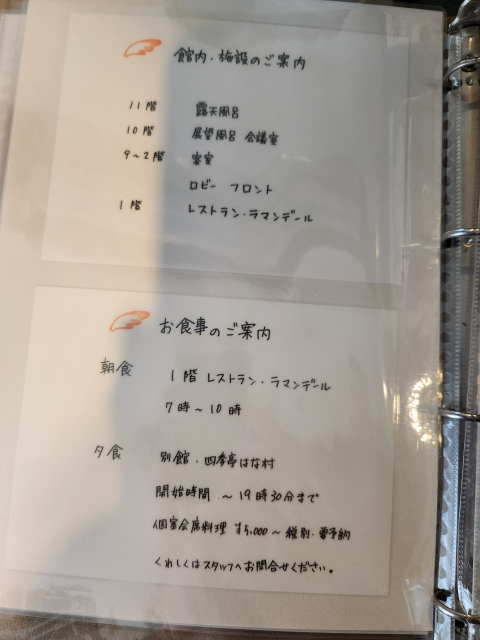 館内・施設のご案内
11階 露天風呂
10階 展望風呂 会議室
9～2階 客室
ロビー フロント
1階 レストラン・ラマンデール
お食事のご案内
朝食 1階 レストラン・ラマンデール
7時～10時
夕食 別館・四季亭はな村
開始時間 ～19時30分まで
個室会席料理 ¥5,000～ 税別・要予約
くわしくはスタッフへお問合せください。